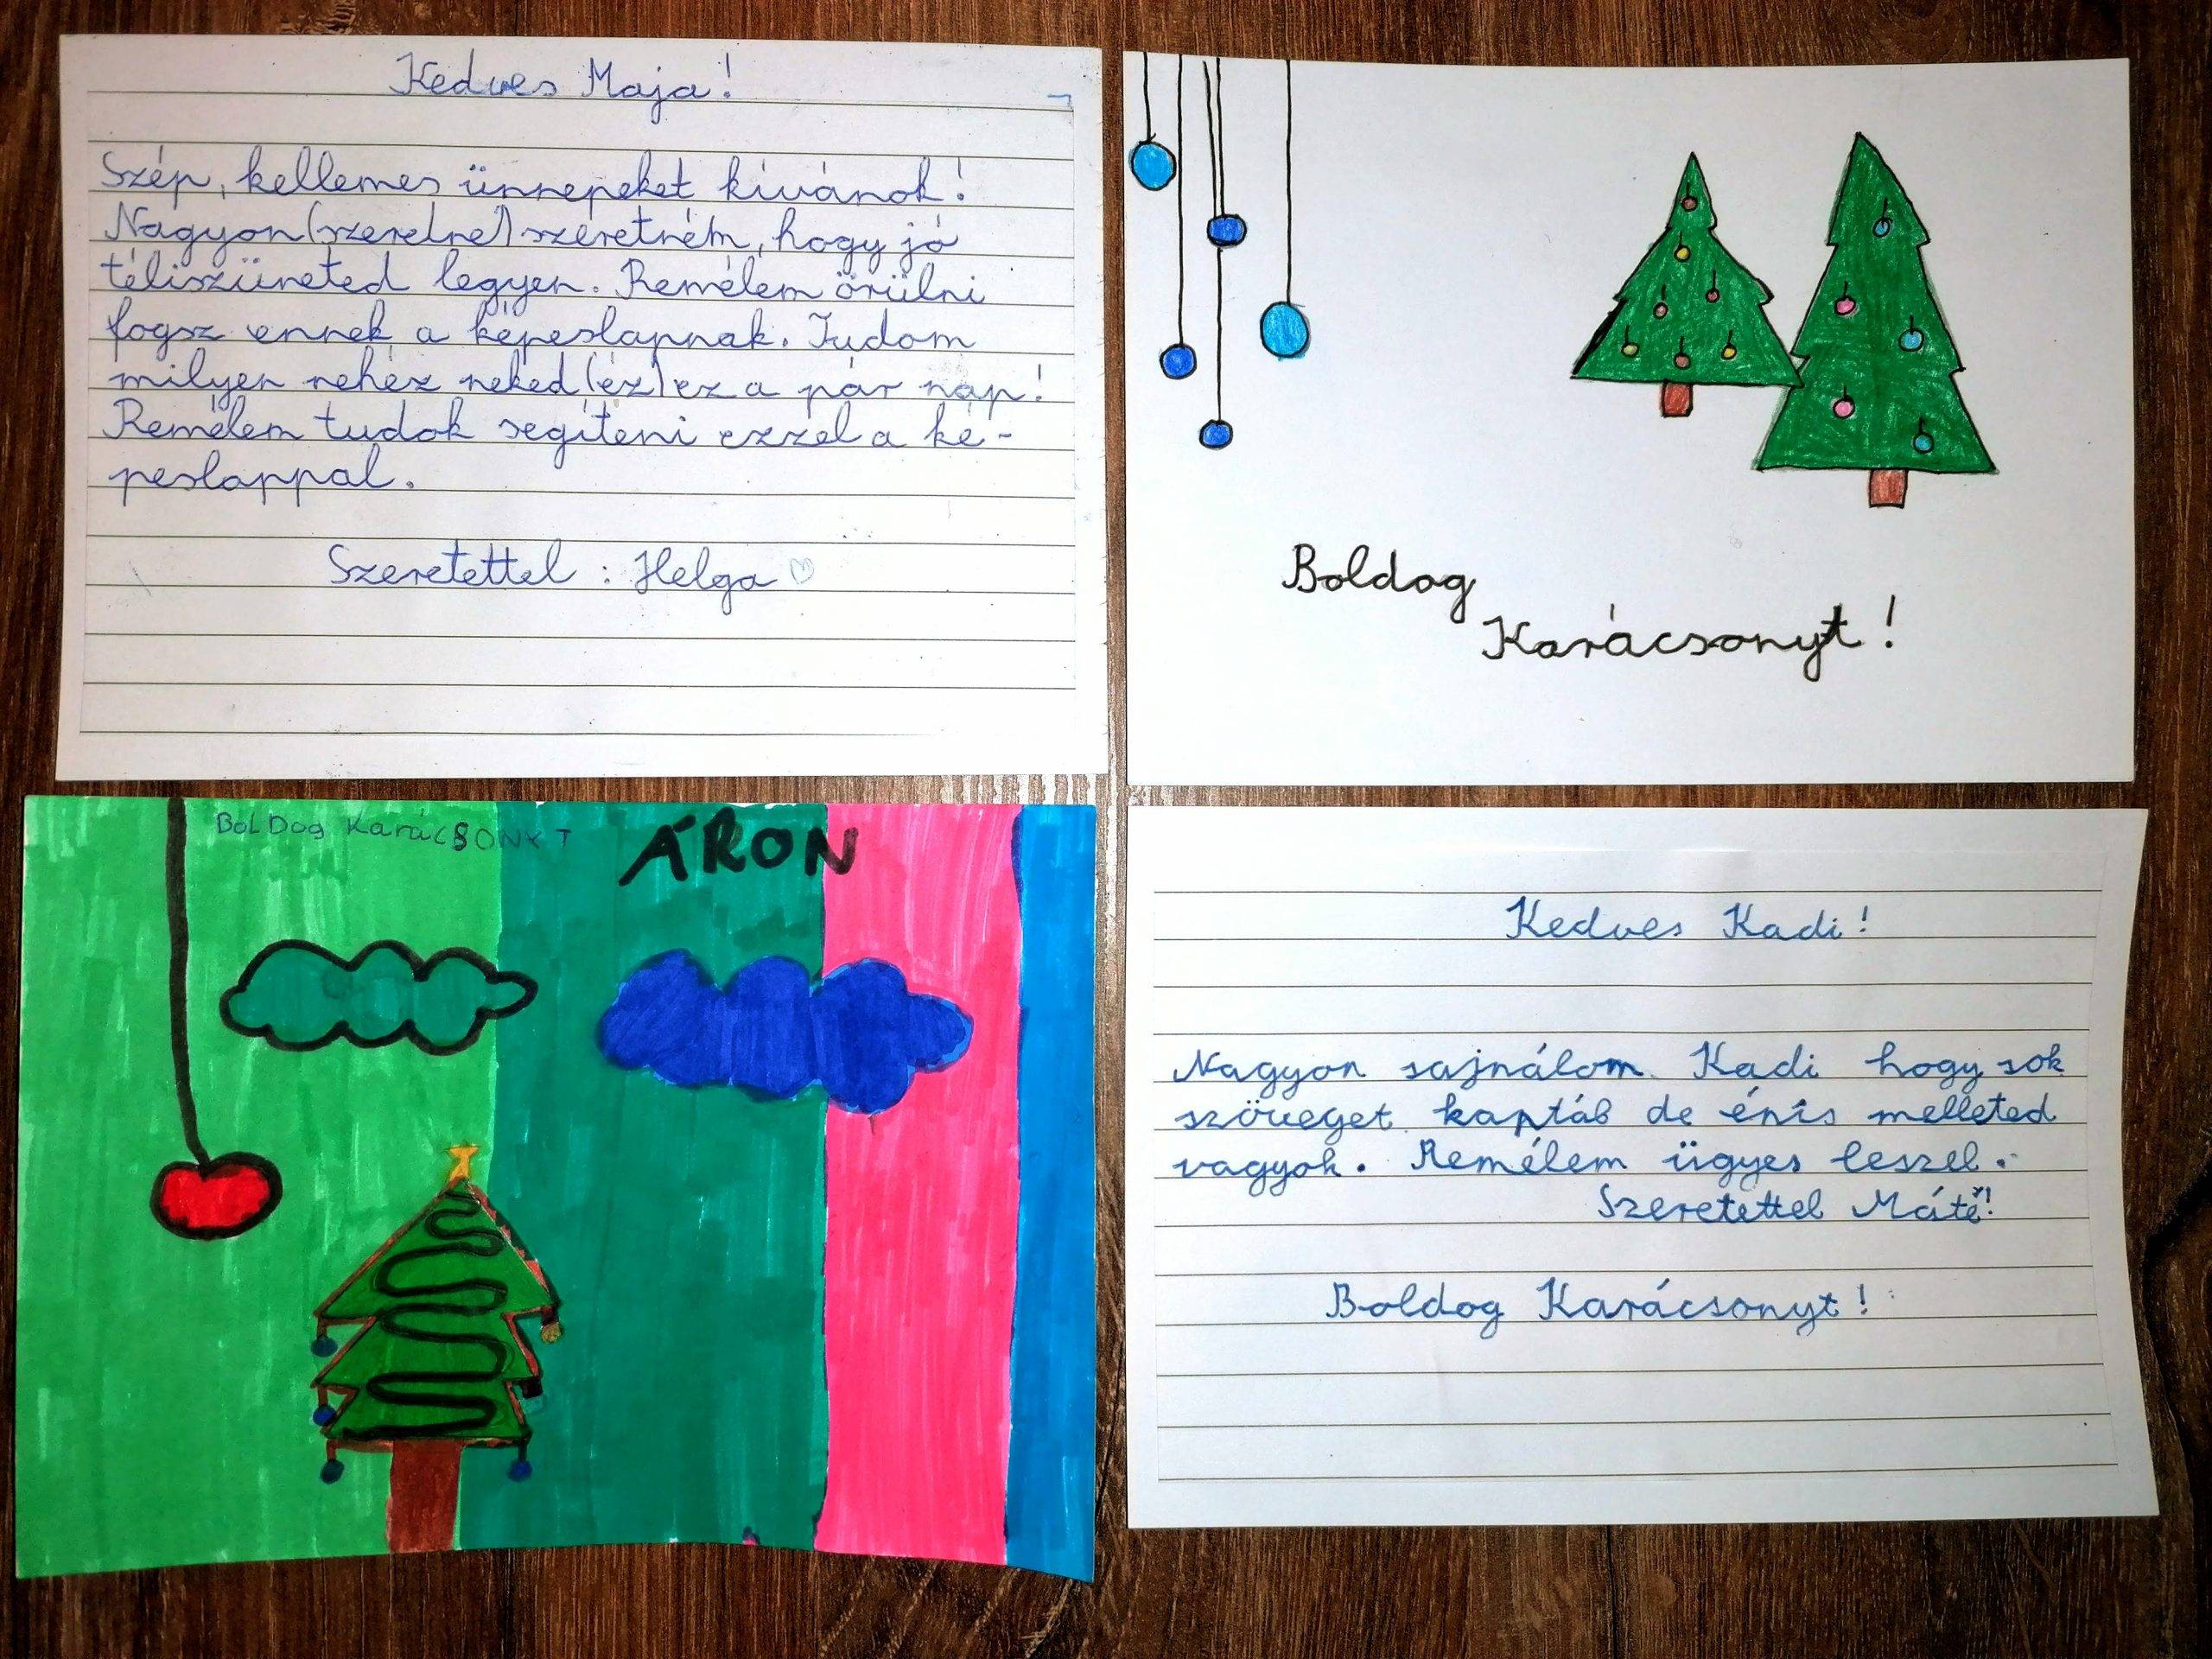 Kedves Maja!
Szép, kellemes ünnepeket kívánok!
Nagyon (szeretné) szeretném, hogy jó
téliszüneted legyen. Remélem örülni
fogsz ennek a képeslapnak. Tudom
milyen nehéz neked (éz) ez a pár nap!
Remélem tudok segíteni ezzel a ké-
peslappal.
Szeretettel : Helga ♡
Boldog
Karácsonyt!
BoLDog KaráCSONYT
ÁRON
Kedves Kadi!
Nagyon sajnálom Kadi hogy sok
szöveget kaptál de énis melleted
vagyok. Remélem ügyes leszel.
Szeretettel Máté!
Boldog Karácsonyt!